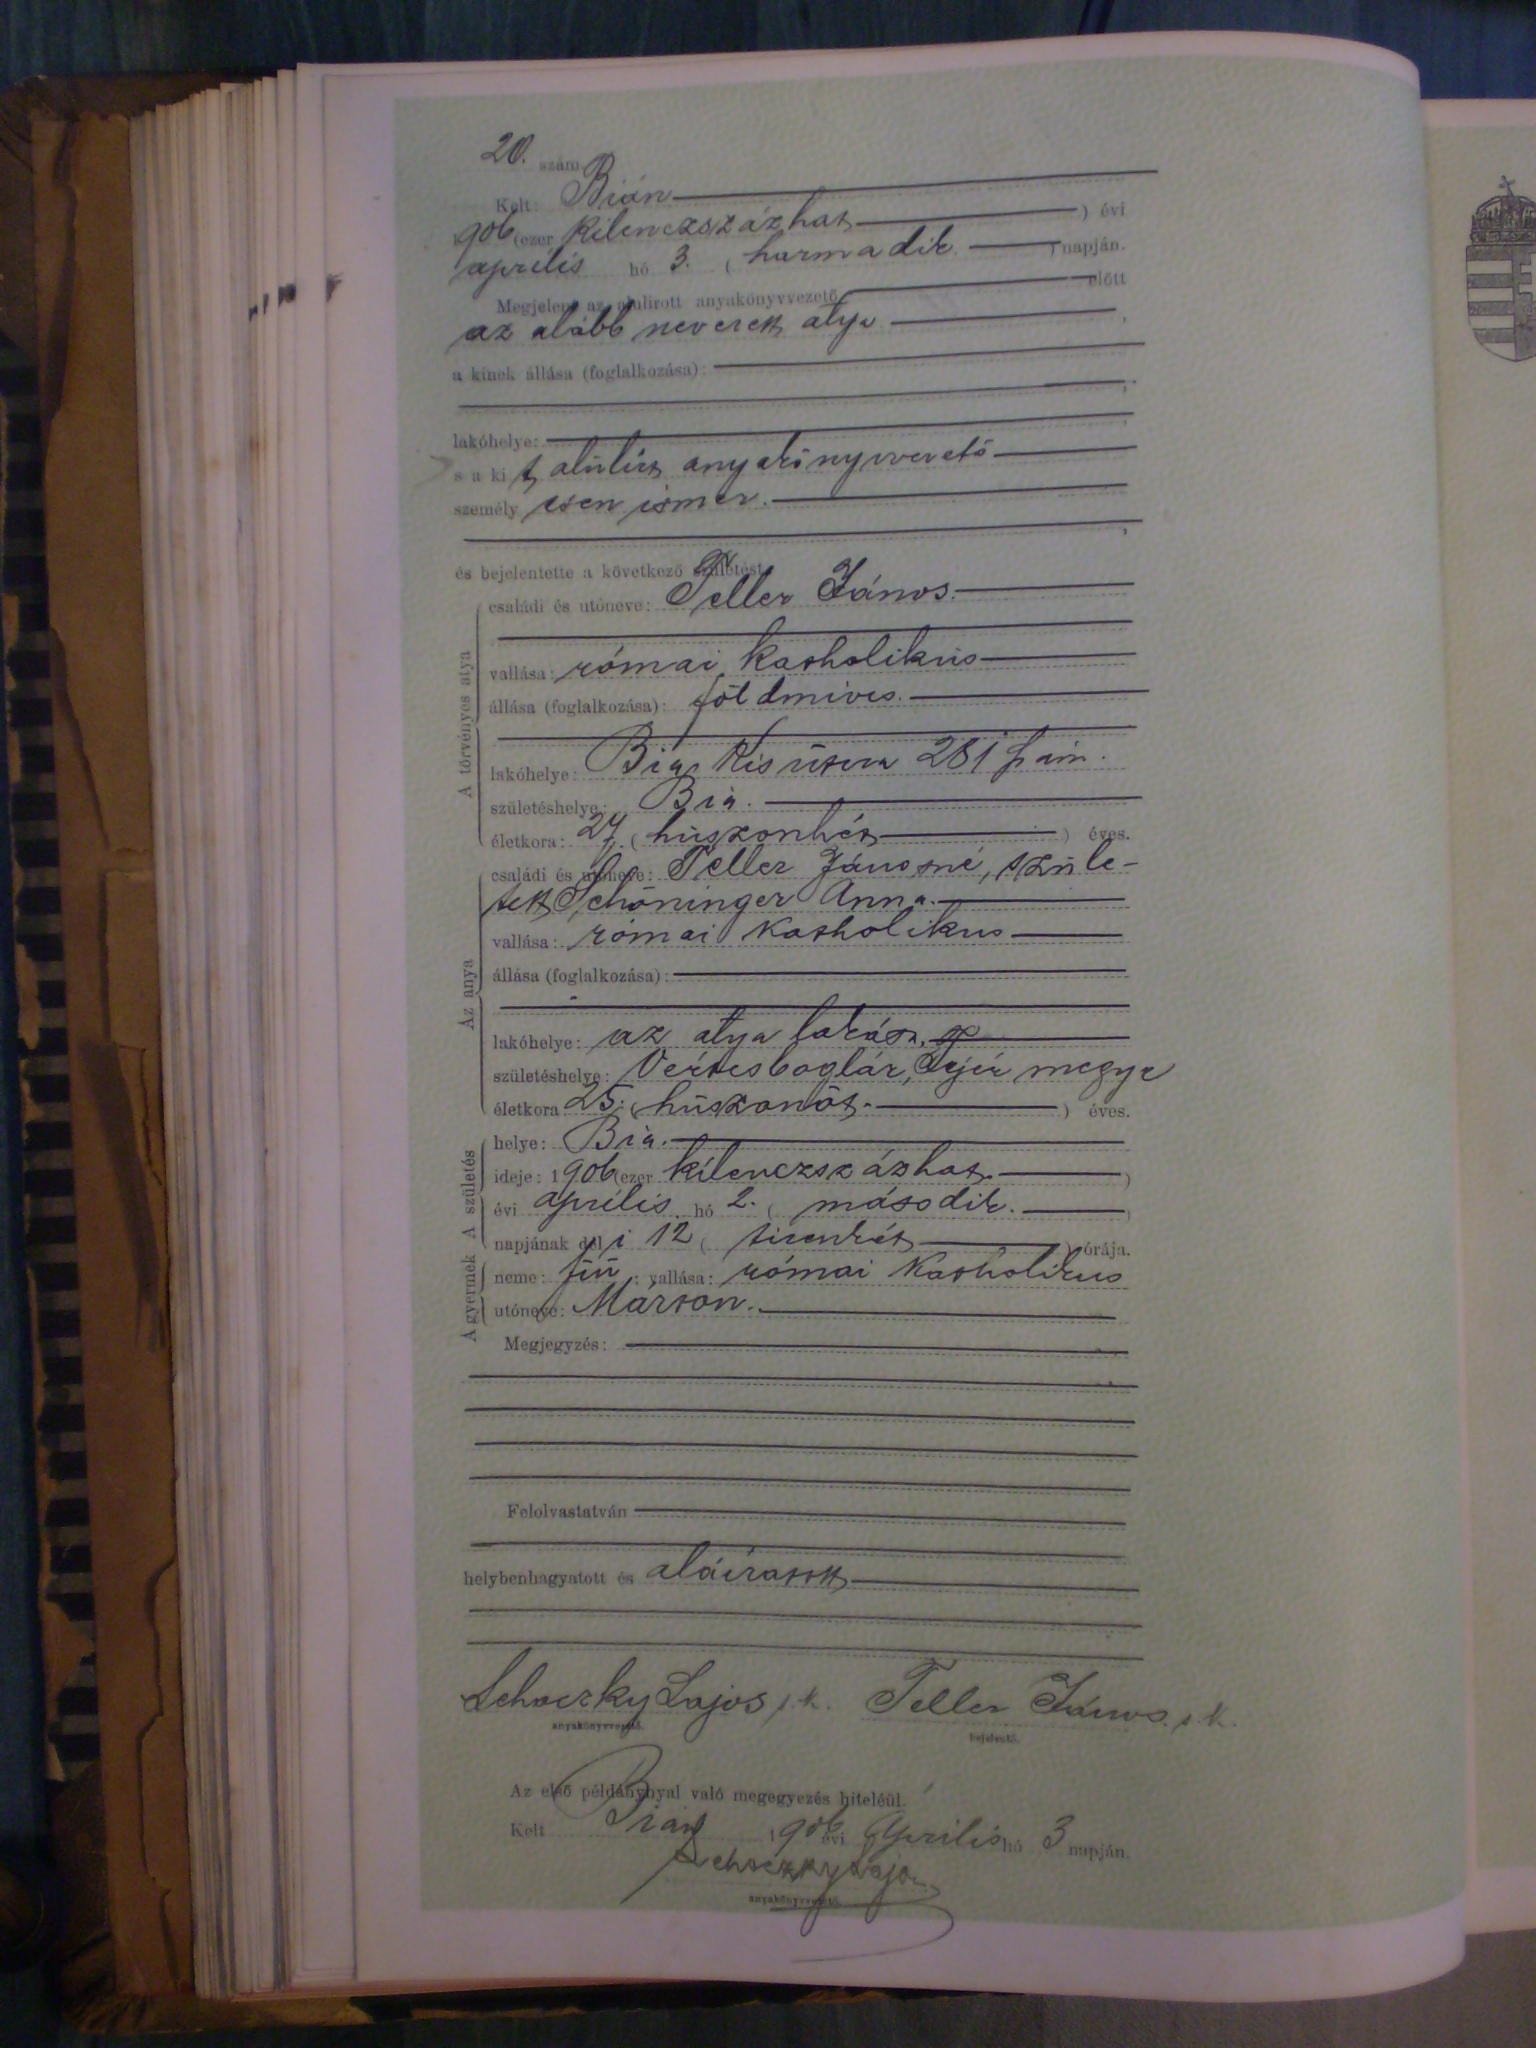 20. szám.
Kelt: Bián
1906 (ezer kilenczszázhat ) évi
április hó 3. ( harmadik ) napján.
Megjelent az alulirott anyakönyvvezető előtt
az alább nevezett atya ,
a kinek állása (foglalkozása):
lakóhelye:
s a ki t alulirt anyakönyvvezető
személy esen ismer.
és bejelentette a következő születést:
A törvényes atya
családi és utóneve: Teller János.
vallása: római katholikus
állása (foglalkozása): földmives.
lakóhelye: Bia, Kis utcza 281 szám.
születéshelye: Bia.
életkora: 27. ( huszonhét ) éves.
Az anya
családi és utóneve: Teller Jánosné, szüle-
tett Schöninger Anna.
vallása: római katholikus
állása (foglalkozása):
lakóhelye: az atya lakása.
születéshelye: Vértesboglár, Fejér megye
életkora: 25. ( huszonöt. ) éves.
A születés
helye: Bia.
ideje: 1906 (ezer kilenczszázhat. )
évi április hó 2. ( második. )
napjának dél i 12 ( tizenkét ) órája.
A gyermek
neme: fiú ; vallása: római katholikus
utóneve: Márton.
Megjegyzés:
Felolvastatván
helybenhagyatott és aláiratott
Schoczky Lajos s. k. Teller János. s. k.
anyakönyvvezető. bejelentő.
Az első példánynyal való megegyezés hiteléül.
Kelt Bián 1906 évi április hó 3 napján.
Schoczky Lajos
anyakönyvvezető.